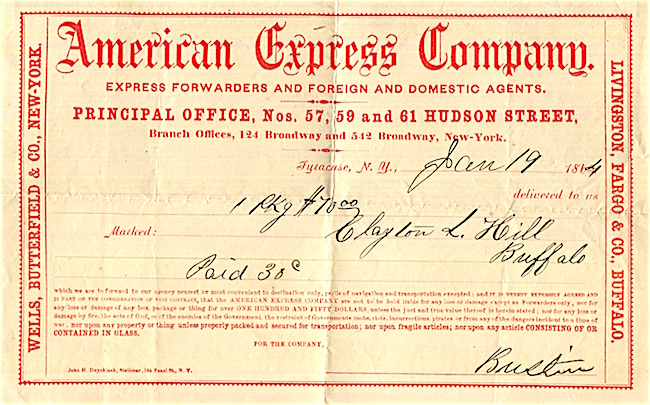 American Express Company.
EXPRESS FORWARDERS AND FOREIGN AND DOMESTIC AGENTS.
PRINCIPAL OFFICE, Nos. 57, 59 and 61 HUDSON STREET,
Branch Offices, 124 Broadway and 542 Broadway, New-York.
Syracuse, N. Y., Jan 19 1864
delivered to us
1 Pkg $70 00
Marked: Clayton L. Hill
Buffalo
Paid 30c
which we are to forward to our agency nearest or most convenient to destination only, perils of navigation and transportation excepted; and IT IS HEREBY EXPRESSLY AGREED AND
IS PART OF THE CONSIDERATION OF THIS CONTRACT, that the AMERICAN EXPRESS COMPANY are not to be held liable for any loss or damage except as Forwarders only, nor for
any loss or damage of any box, package or thing for over ONE HUNDRED AND FIFTY DOLLARS, unless the just and true value thereof is herein stated; nor for any loss or
damage by fire, the acts of God, or of the enemies of the Government, the restraint of Governments, mobs, riots, insurrections, pirates, or from any of the dangers incident to a time of
war; nor upon any property or thing unless properly packed and secured for transportation; nor upon fragile articles; nor upon any article CONSISTING OF OR
CONTAINED IN GLASS.
FOR THE COMPANY,
John H. Duyckinck, Stationer, Pearl St., N. Y.
WELLS, BUTTERFIELD & CO., NEW-YORK.
LIVINGSTON, FARGO & CO., BUFFALO.